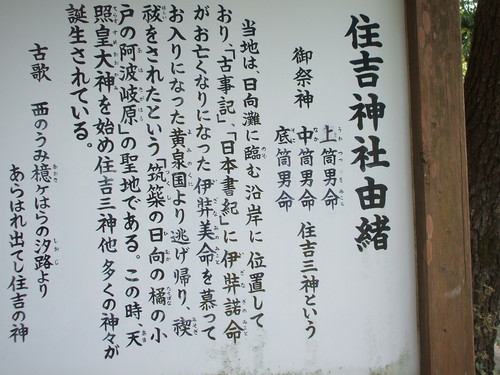 住吉神社由緒
御祭神
上筒男命
中筒男命
底筒男命
住吉三神という
当地は、日向灘に臨む沿岸に位置して
おり、「古事記」、「日本書紀」に伊弉諾命
がお亡くなりになった伊弉美命を慕って
お入りになった黄泉国より逃げ帰り、禊
祓をされたという「筑築の日向の橘の小
戸の阿波岐原」の聖地である。この時、天
照皇大神を始め住吉三神他多くの神々が
誕生されている。
古歌
西のうみ檍ヶはらの汐路より
あらはれ出でし住吉の神